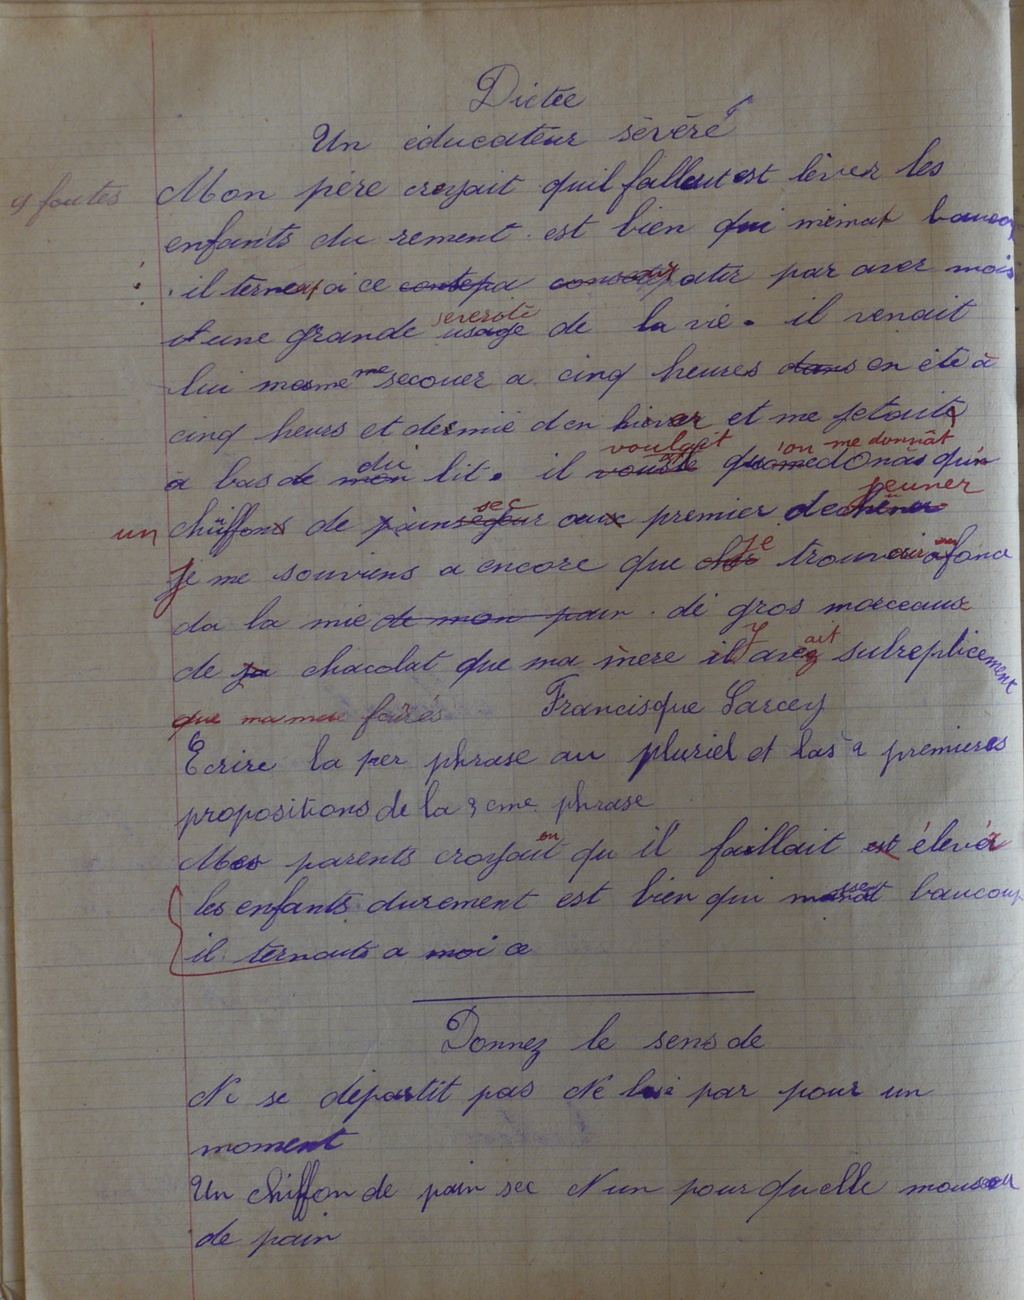 Dictée
Un éducateur sévère
9 fautes Mon père croyait quil fallait est lever les
enfants du rement. est bien qui mémat baucoup
il ternait a ce par avec mois
et une grande severote usage de la vie. il venait
lui mesme me secouer a cinq heures dans en été à
cinq heurs et desmié d en hiver et me jetait
à bas de mon du lit. il voulait qu'on me donnât qu'un
un chiffon de sec aux premier dechener jeuner
je me souviens a encore que je trouvais au fond
da la mie de mon pain. de gros morceaux
de chacolat que ma mère il y avait subreplicement
que ma mere Francisque Sarcey
Ecrire la 1er phrase au pluriel et las 2 premieres
propositions de la 2 eme phrase
Mes parents croyait qu il faillait est élever
les enfants durement est bien qui baucoup
il ternaits a moi ce
Donnez le sens de
Ne se départit pas Ne pour un
moment
Un chiffon de pain sec
de pain